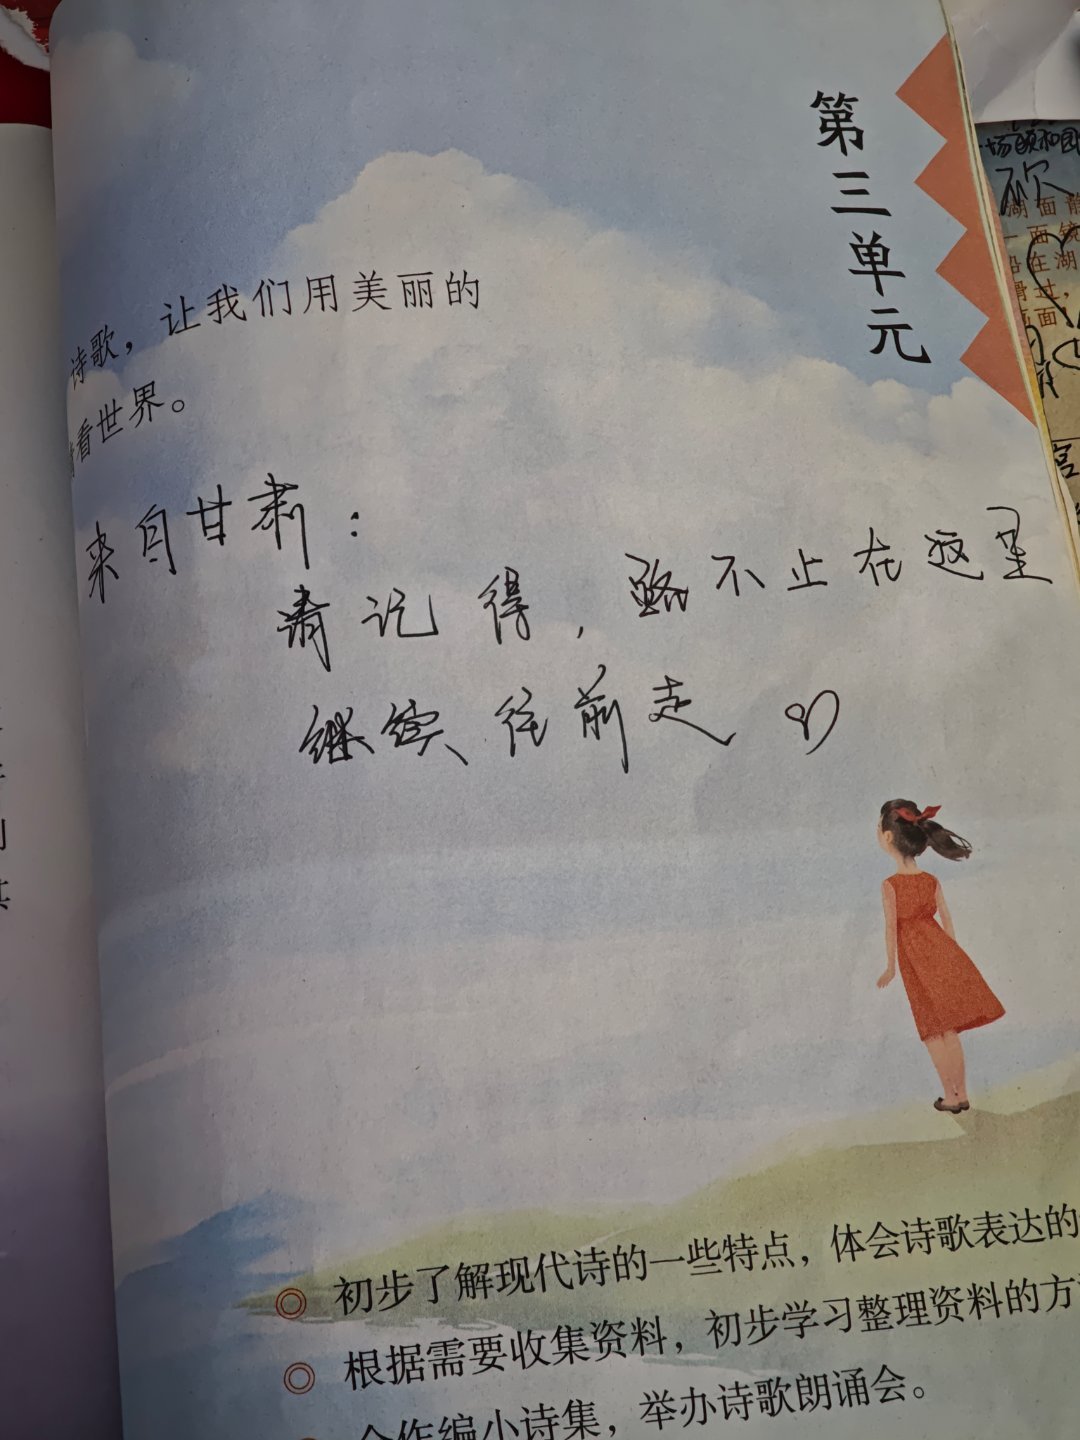 第三单元
诗歌，让我们用美丽的
看世界。
来自甘肃：
请记得，路不止在这里
继续往前走
初步了解现代诗的一些特点，体会诗歌表达的
根据需要收集资料，初步学习整理资料的方
合作编小诗集，举办诗歌朗诵会。
湖面静
一面镜
在湖
滑过，
面